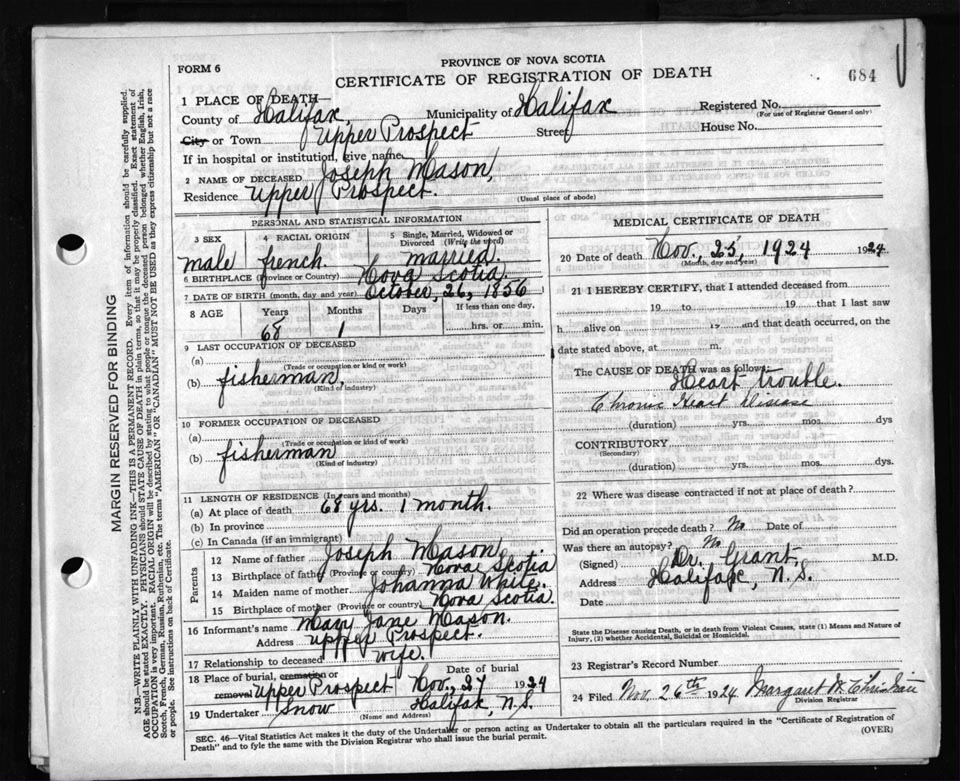 PROVINCE OF NOVA SCOTIA
FORM 6
CERTIFICATE OF REGISTRATION OF DEATH
684
1 PLACE OF DEATH—
County of Halifax, Municipality of Halifax Registered No.
(For use of Registrar General only)
City or Town Upper Prospect Street House No.
If in hospital or institution, give name
2 NAME OF DECEASED Joseph Mason
Residence Upper Prospect.
(Usual place of abode)
PERSONAL AND STATISTICAL INFORMATION
3 SEX 4 RACIAL ORIGIN 5 Single, Married, Widowed or Divorced (Write the word)
male french. married.
6 BIRTHPLACE (Province or Country) Nova Scotia.
7 DATE OF BIRTH (month, day and year) October, 26, 1856
8 AGE Years Months Days If less than one day,
68 1 hrs. or min.
9 LAST OCCUPATION OF DECEASED
(a)
(Trade or occupation or kind or work)
(b) fisherman,
(Kind of industry)
10 FORMER OCCUPATION OF DECEASED
(a)
(Trade or occupation or kind of work)
(b) fisherman
(Kind of industry)
11 LENGTH OF RESIDENCE (In years and months)
(a) At place of death 68 yrs. 1 month.
(b) In province
(c) In Canada (if an immigrant)
Parents
12 Name of father Joseph Mason.
13 Birthplace of father (Province or country) Nova Scotia
14 Maiden name of mother Johanna White.
15 Birthplace of mother (Province or country) Nova Scotia.
16 Informant's name Mary Jane Mason.
Address Upper Prospect.
17 Relationship to deceased wife.
18 Place of burial, cremation or removal Upper Prospect Date of burial Nov., 27 1924
19 Undertaker Snow Halifax, N.S.
(Name and Address)
MEDICAL CERTIFICATE OF DEATH
20 Date of death Nov., 25, 1924 1924
(Month, day and year)
21 I HEREBY CERTIFY, that I attended deceased from
19 to 19 that I last saw
h alive on 19 and that death occurred, on the
date stated above, at m.
The CAUSE OF DEATH was as follows:
Heart trouble.
Chronic Heart Disease
(duration) yrs. mos. dys
CONTRIBUTORY
(Secondary)
(duration) yrs. mos. dys.
22 Where was disease contracted if not at place of death?
Did an operation precede death? No Date of
Was there an autopsy? No
(Signed) Dr. Grant, M.D.
Address Halifax, N.S.
Date
State the Disease causing Death, or in death from Violent Causes, state (1) Means and Nature of
Injury, (2) whether Accidental, Suicidal or Homicidal.
23 Registrar's Record Number
24 Filed Nov. 26th 1924 Margaret
Division Registrar
SEC. 46—Vital Statistics Act makes it the duty of the Undertaker or person acting as Undertaker to obtain all the particulars required in the "Certificate of Registration of
Death" and to fyle the same with the Division Registrar who shall issue the burial permit.
(OVER)
MARGIN RESERVED FOR BINDING
N.B.—WRITE PLAINLY WITH UNFADING INK—THIS IS A PERMANENT RECORD. Every item of information should be carefully supplied.
AGE should be stated EXACTLY. PHYSICIANS should STATE CAUSE OF DEATH in plain terms, so that it may be properly classified. Exact statement of
OCCUPATION is very important. RACIAL ORIGIN will be described by stating to what people or tongue the deceased person belonged whether English, Irish,
Scotch, French, German, Russian, Ruthenian, etc. The terms "AMERICAN" or "CANADIAN" MUST NOT BE USED as they express citizenship but not a race
or people. See instructions on back of Certificate.